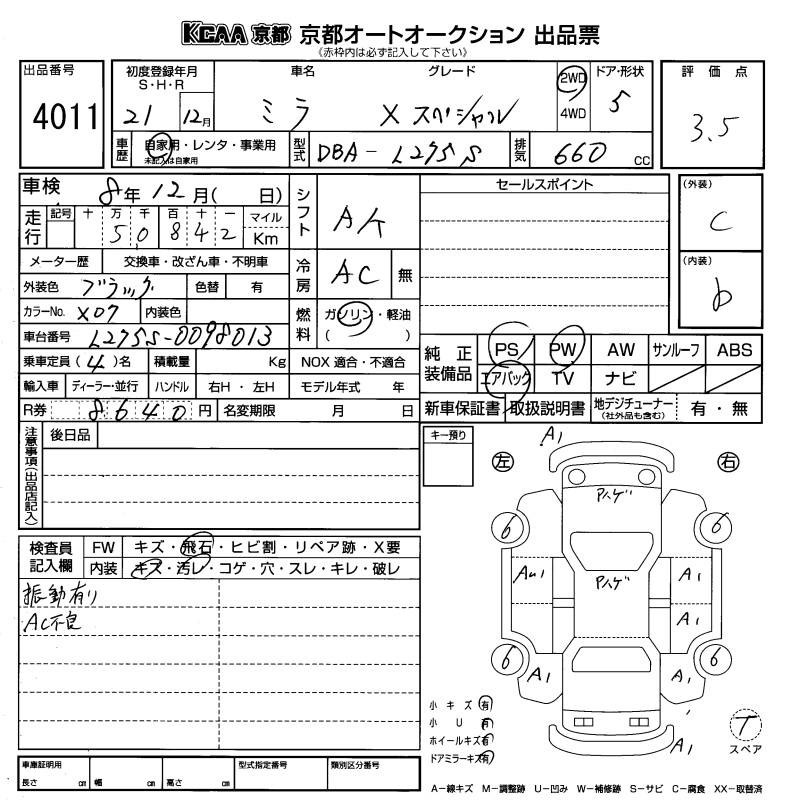 KCAA 京都 京都オートオークション 出品票
《赤枠内は必ず記入して下さい》
出品番号 4011
初度登録年月 S・H・R 21 12月
車名 ミラ
グレード X スペシャル
2WD 4WD
ドア・形状 5
評価点 3.5
車歴 自家用・レンタ・事業用 未記入は自家用
型式 DBA-L275S
排気 660 CC
車検 8年12月( 日)
走行 記号 十 万 千 百 十 一 マイル Km
50842
メーター歴 交換車・改ざん車・不明車
外装色 ブラック 色替 有
カラーNo. X07 内装色
車台番号 L275S-0098013
乗車定員(4)名 積載量 Kg
輸入車 ディーラー・並行 ハンドル 右H・左H
R券 8640円 名変期限 月 日
シフト AK
冷房 AC 無
燃料 ガソリン・軽油 ( )
NOX 適合・不適合
モデル年式 年
セールスポイント
(外装) C
(内装) b
純正装備品 PS PW AW サンルーフ ABS
エアバック TV ナビ
新車保証書 取扱説明書 地デジチューナー (社外品も含む) 有・無
注意事項(出品店記入) 後日品
キー預り
検査員記入欄 FW キズ・飛石・ヒビ割・リペア跡・X要
内装 キズ・汚レ・コゲ・穴・スレ・キレ・破レ
振動有り
AC不良
左 右
A1
Aハゲ
6 6
AU1 Aハゲ A1
A1
6 6
A1 A1
A1
小キズ 有
小U 有
ホイールキズ 有
ドアミラーキズ 有
T スペア
車庫証明用 長さ cm 幅 cm 高さ cm
型式指定番号 類別区分番号
A―線キズ M―調整跡 U―凹み W―補修跡 S―サビ C―腐食 XX―取替済